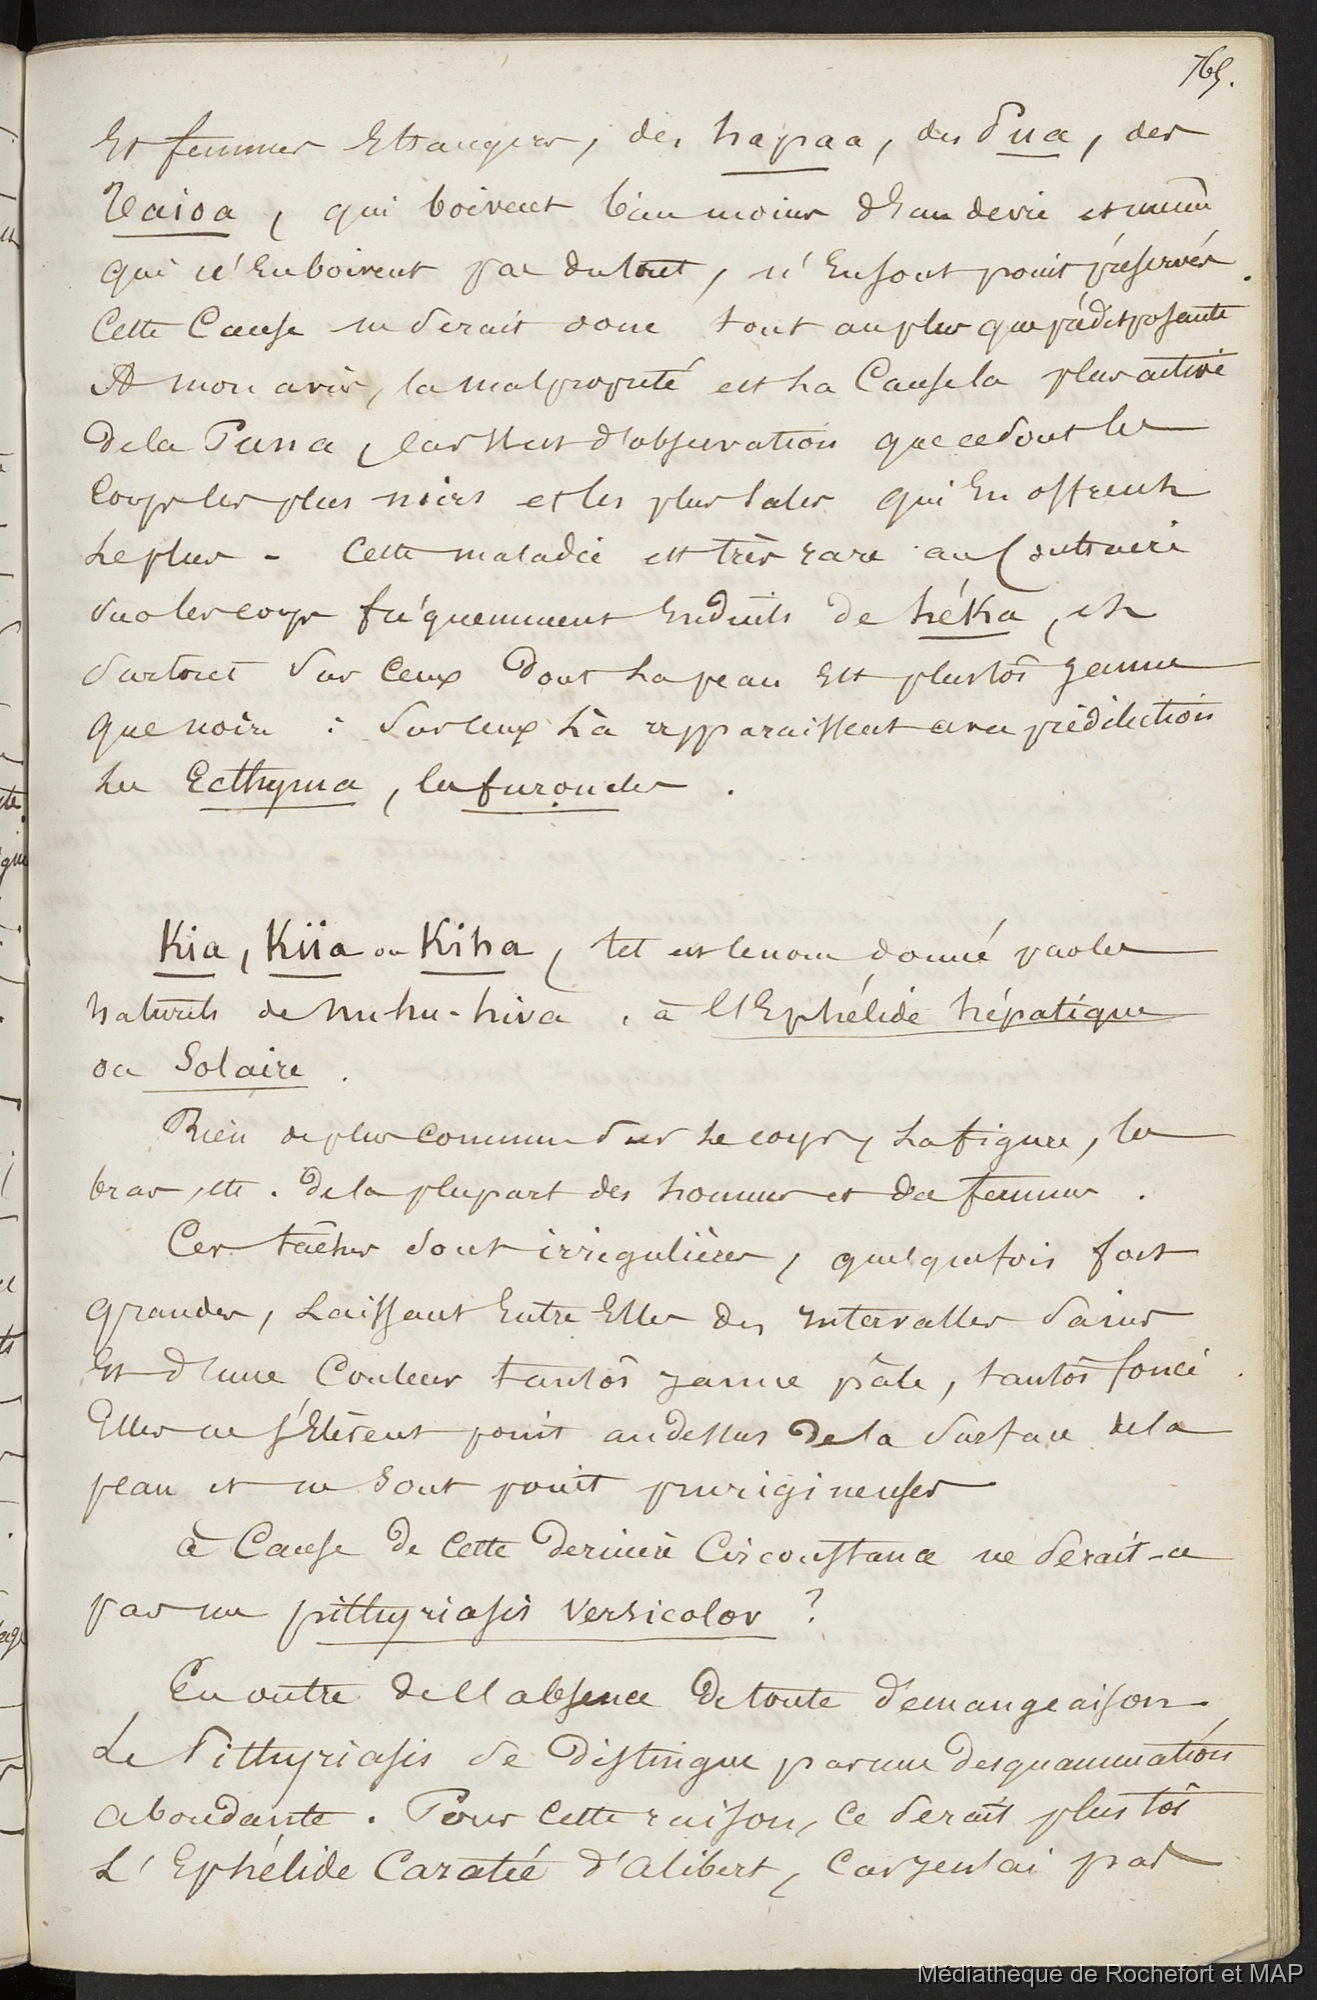 765.
Et femmes Etrangers, des hapaa, des Pua, des
Taioa, qui boivent bien moins d'Eau devie et même
qui n'En boivent pas du tout, n'En sont point préservés.
Cette Cause ne serait donc tout au plus que prédisposante
A mon avis, la malpropreté est La Cause la plus active
De la Puna, car Il est d'observation que ce sont les
Corps les plus noirs et les plus sales qui En offrent
Le plus - Cette maladie est très rare au Contraire
sur les corps fréquemment Enduits de héka, et
surtout sur Ceux Dont La peau Est plustôt jaune
que noire : sur ceux Là apparaissent avec prédilection
Les Ecthyma, les furoncles.
Kia, Kiia ou Kiha, tel est le nom donné par les
naturels de nu-hu-hiva, à l'Ephélide hépatique
ou Solaire.
Rien de plus commun sur le corps, La figure, les
bras, etc. De la plupart des hommes et des femmes.
Ces tâches sont irrégulières, quelquefois fort
grandes, Laissant Entre Elles des intervalles sains
Et d'une Couleur tantôt jaune pâle, tantôt foncé.
Elles ne s'Elèvent point au dessus De la surface de la
peau et ne sont point prurigineuses
à Cause De Cette Dernière Circonstance ne serait-ce
pas un pithyriasis versicolor ?
En outre de l'absence De toute démangeaison
Le Pithyriasis se Distingue par une desquammation
abondante. Pour Cette raison, Ce serait plustôt
L'Ephélide Caratée d'Alibert, Car je n'ai pas
Médiathèque de Rochefort et MAP